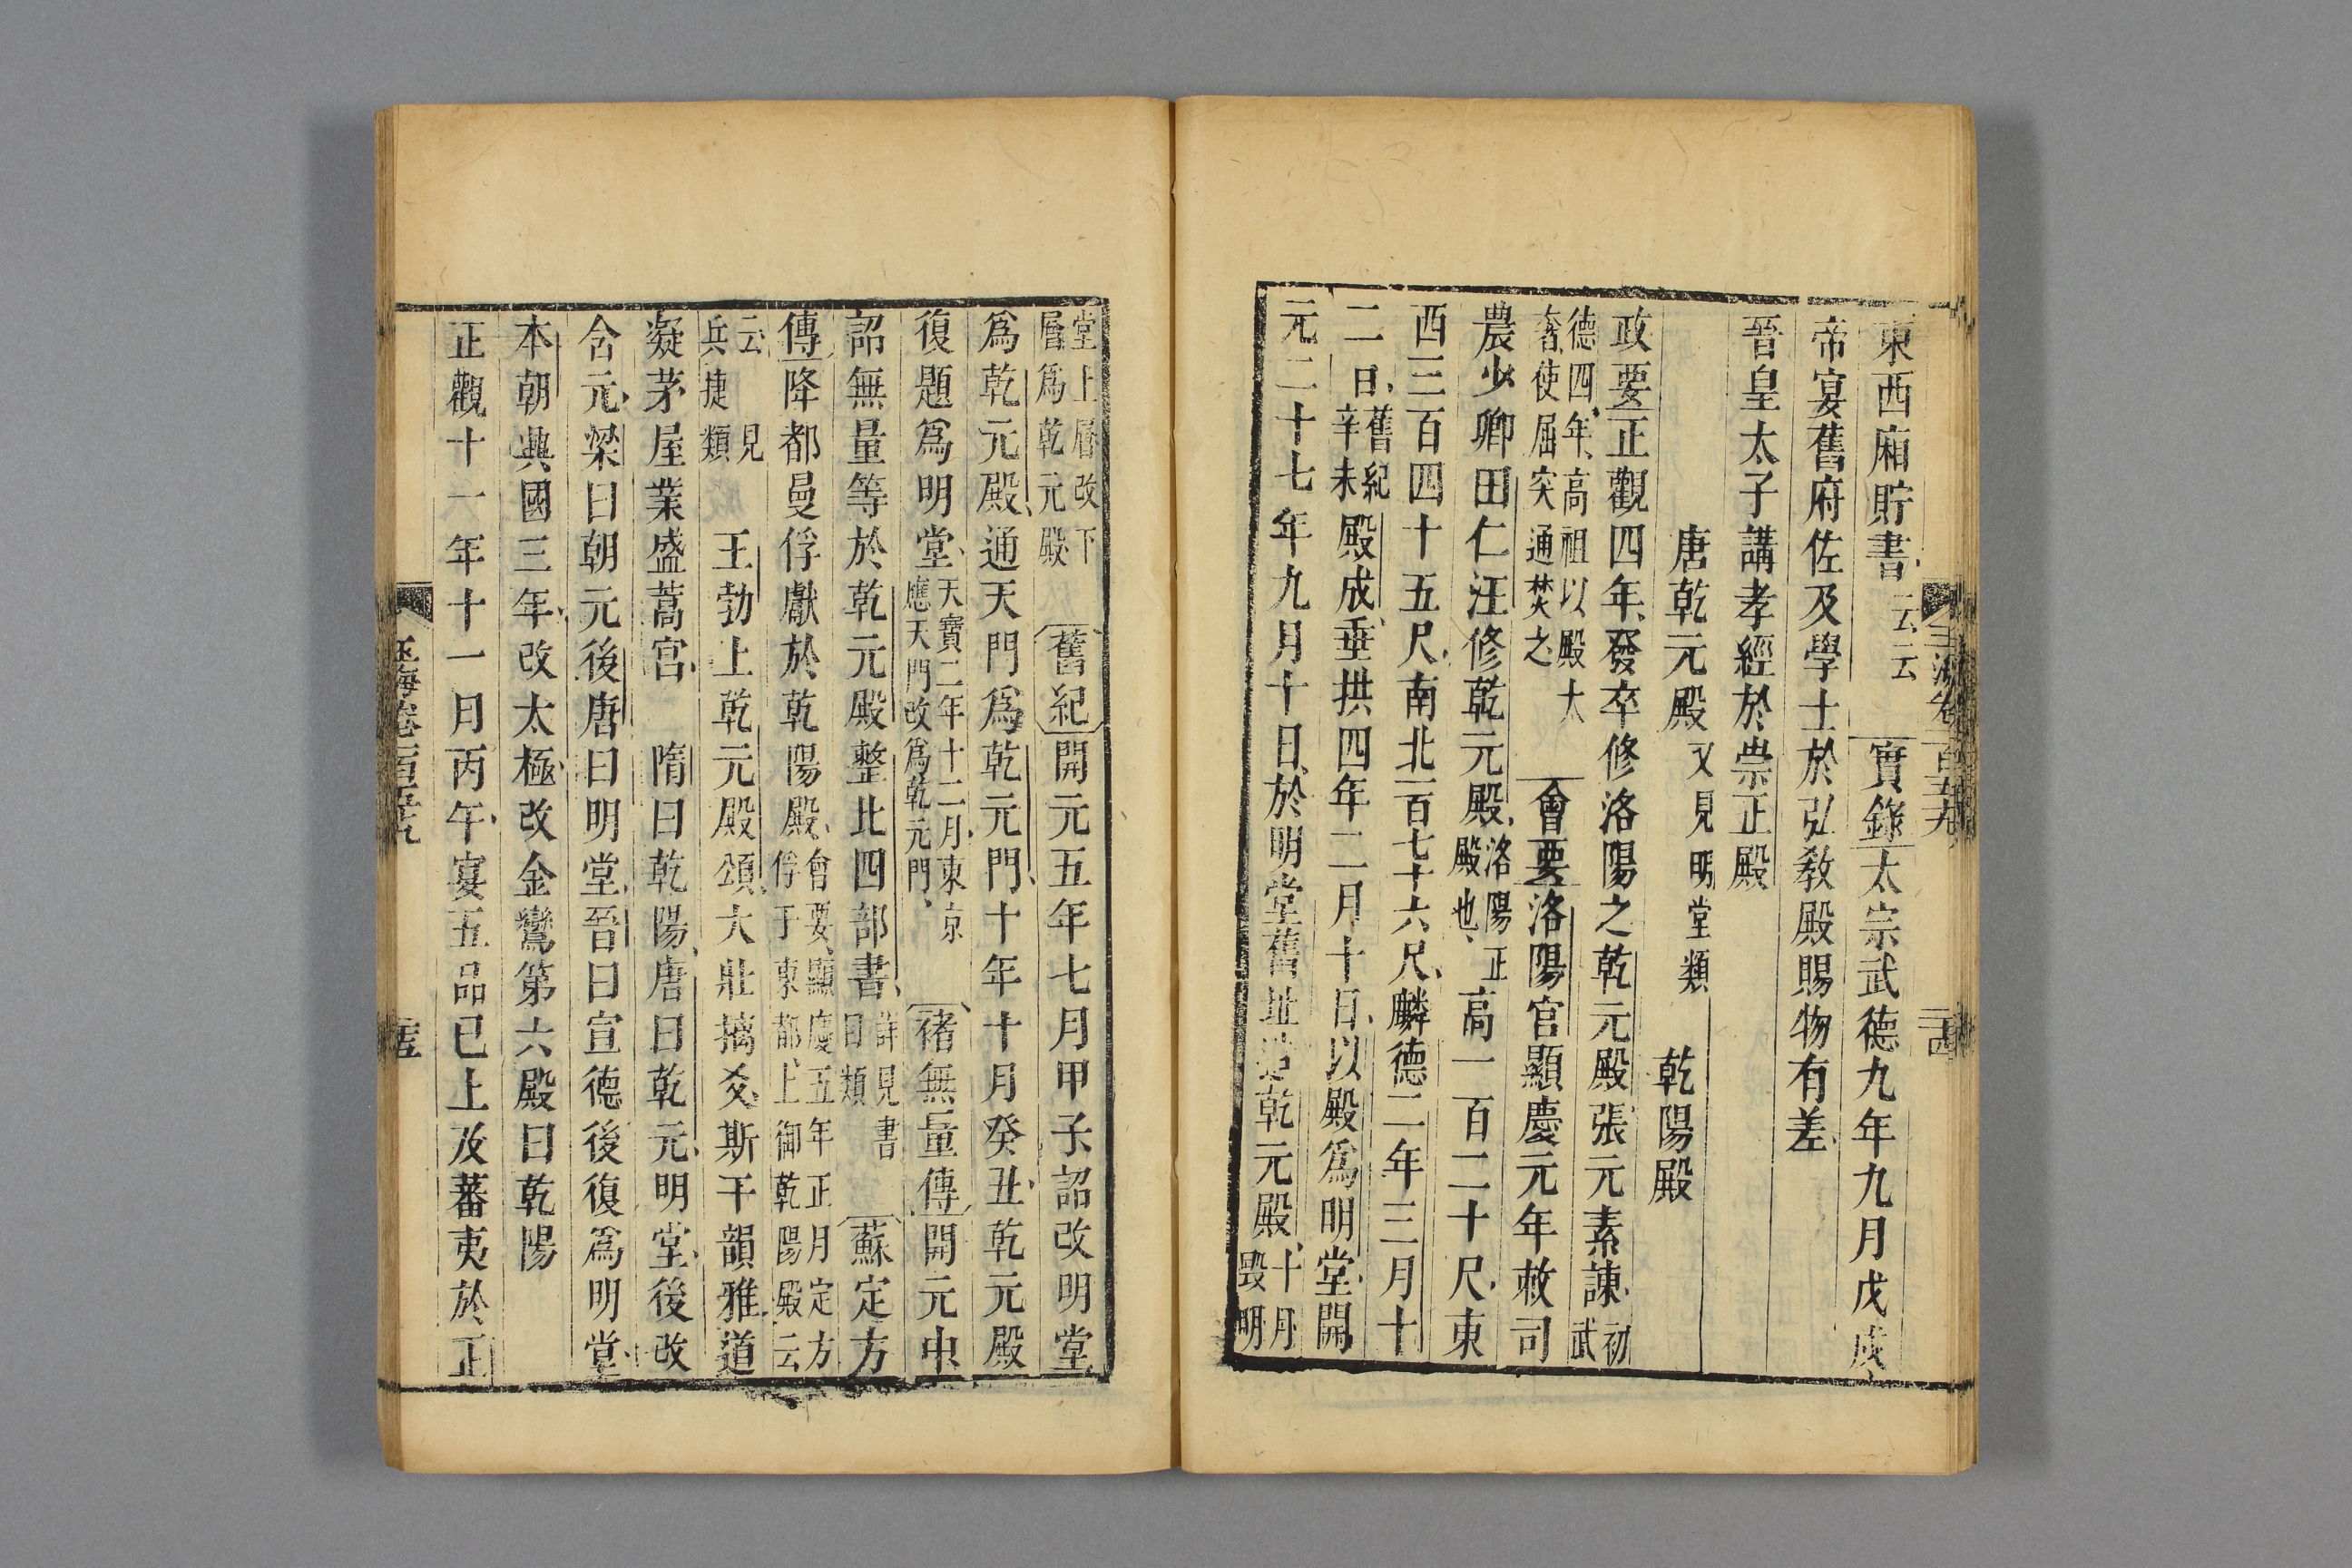 東西廂貯書云云實錄太宗武德九年九月戊戌
帝宴舊府佐及學士於弘敎殿賜物有差
晉皇太子講孝經於崇正殿
唐乾元殿又見明堂類 乾陽殿
政要正觀四年發卒修洛陽之乾元殿張元素諫初武
德四年高祖以殿太奢使屈突通焚之會要洛陽宮顯慶元年敕司
農少卿田仁汪修乾元殿洛陽正殿也高一百二十尺東
西三百四十五尺南北一百七十六尺麟德二年三月十
二日舊紀辛未殿成垂拱四年二月十日以殿爲明堂開
元二十七年九月十日於明堂舊址造乾元殿十月毀明
玉海卷一百五十九 二十四
堂上層改下層爲乾元殿舊紀開元五年七月甲子詔改明堂
爲乾元殿通天門爲乾元門十年十月癸丑乾元殿
復題爲明堂天寶二年十二月東京應天門改爲乾元門褚無量傳開元中
詔無量等於乾元殿整比四部書詳見書目類蘇定方
傳降都曼俘獻於乾陽殿會要顯慶五年正月定方俘于東都上御乾陽殿云
云見兵捷類 王勃上乾元殿頌大壯摛爻斯干韻雅道
凝茅屋業盛蒿宮 隋曰乾陽唐曰乾元明堂後改
含元梁曰朝元後唐曰明堂晉曰宣德後復爲明堂
本朝興國三年改太極改金鸞第六殿曰乾陽
正觀十一年十一月丙午宴五品已上及蕃夷於正
玉海卷一百五十九 二十五